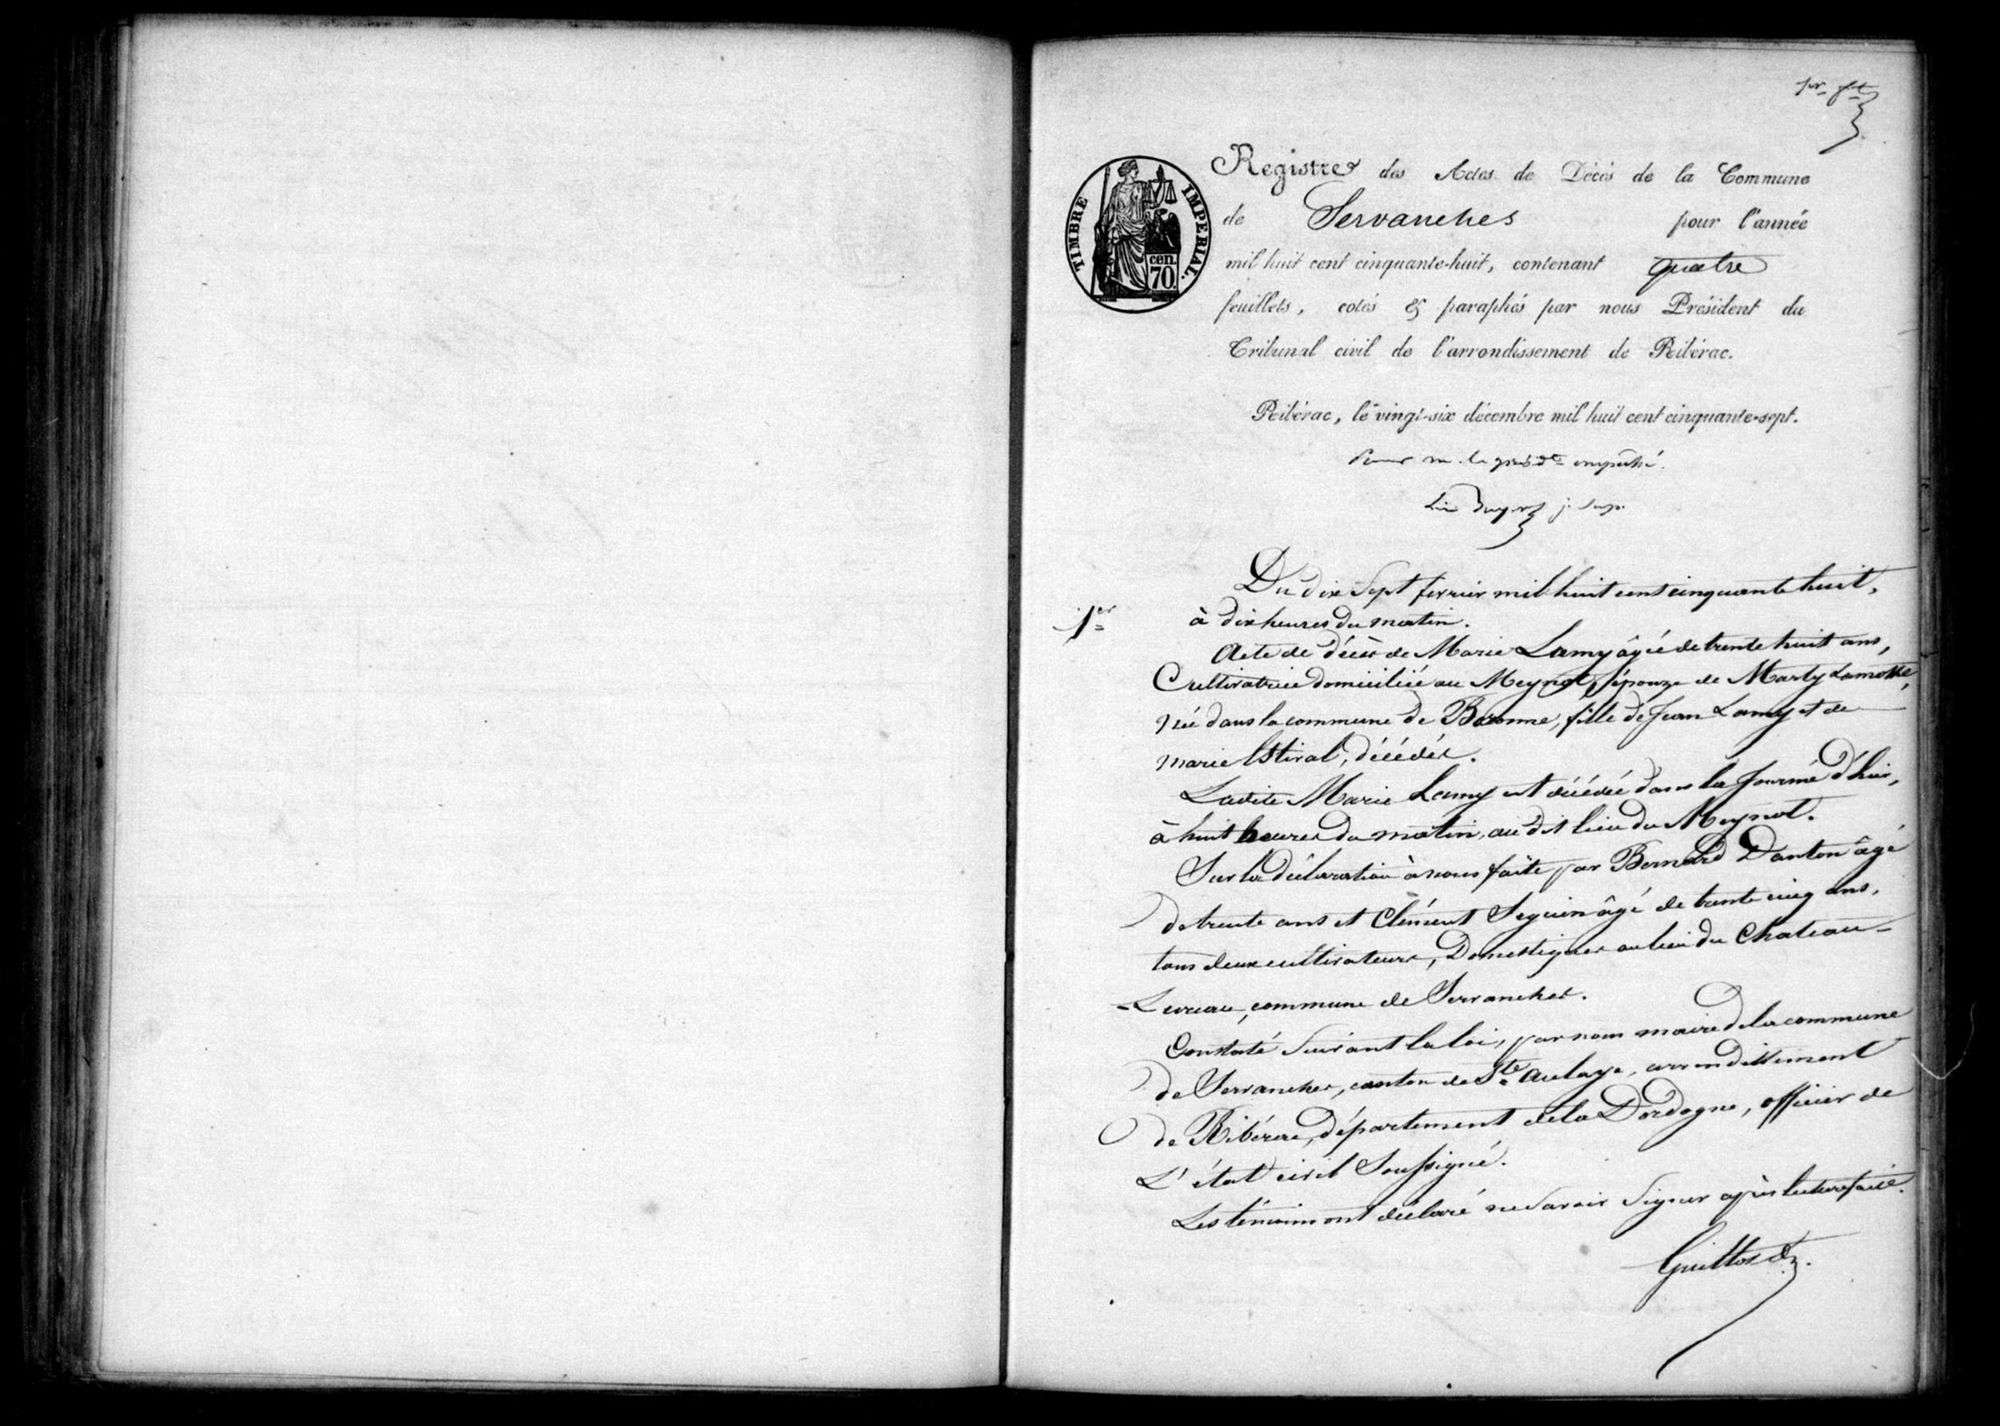 1er ft
TIMBRE IMPERIAL.
cen.
70.
Registre des Actes de Décès de la Commune
de Servanches pour l'année
mil huit cent cinquante-huit, contenant quatre
feuillets, cotés & paraphés par nous Président du
Tribunal civil de l'arrondissement de Ribérac.
Ribérac, le vingt-six décembre mil huit cent cinquante-sept.
Pour m. le présdt empêché.
j. sup.
Du dix Sept fevrier mil huit cent cinquante huit,
1er
à dix heures du matin.
Acte de décès de Marie Lamy âgée de trente huit ans,
Cultivatrice domiciliée au Meynot, épouze de Marty Lamothe,
née dans la commune de , fille de Jean Lamy et de
marie Estival, décédés.
Ladite Marie Lamy est décédée dans la Journée d'hier,
à huit heures du matin, au dit lieu du Meynot.
Sur la déclaration à nous faite par Bernard Danton âgé
de trente ans et Clément Seguin âgé de trente cinq ans,
tous deux cultivateurs, Domestiques au lieu du Chateau-
-Levreau, commune de Servanches.
Constaté Suivant la loi, par nous maire de la commune
de Servanches, canton de Ste Aulaye, arrondissement
de Ribérac, département de la Dordogne, officier de
L'état civil Soussigné.
Les témoins ont déclaré ne Savoir Signer après lecture faite.